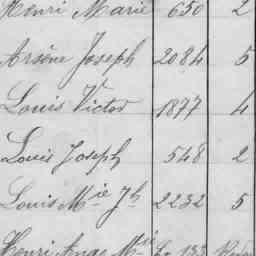 Henri Marie 650 2
Arsène Joseph 2084 5
Louis Victor 1877 4
Louis Joseph 548 2
Louis Mie Jh 2232 5
Henri Ange Mie